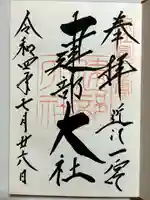 奉拝
近江一宮
建部大社
令和四年七月廿六日